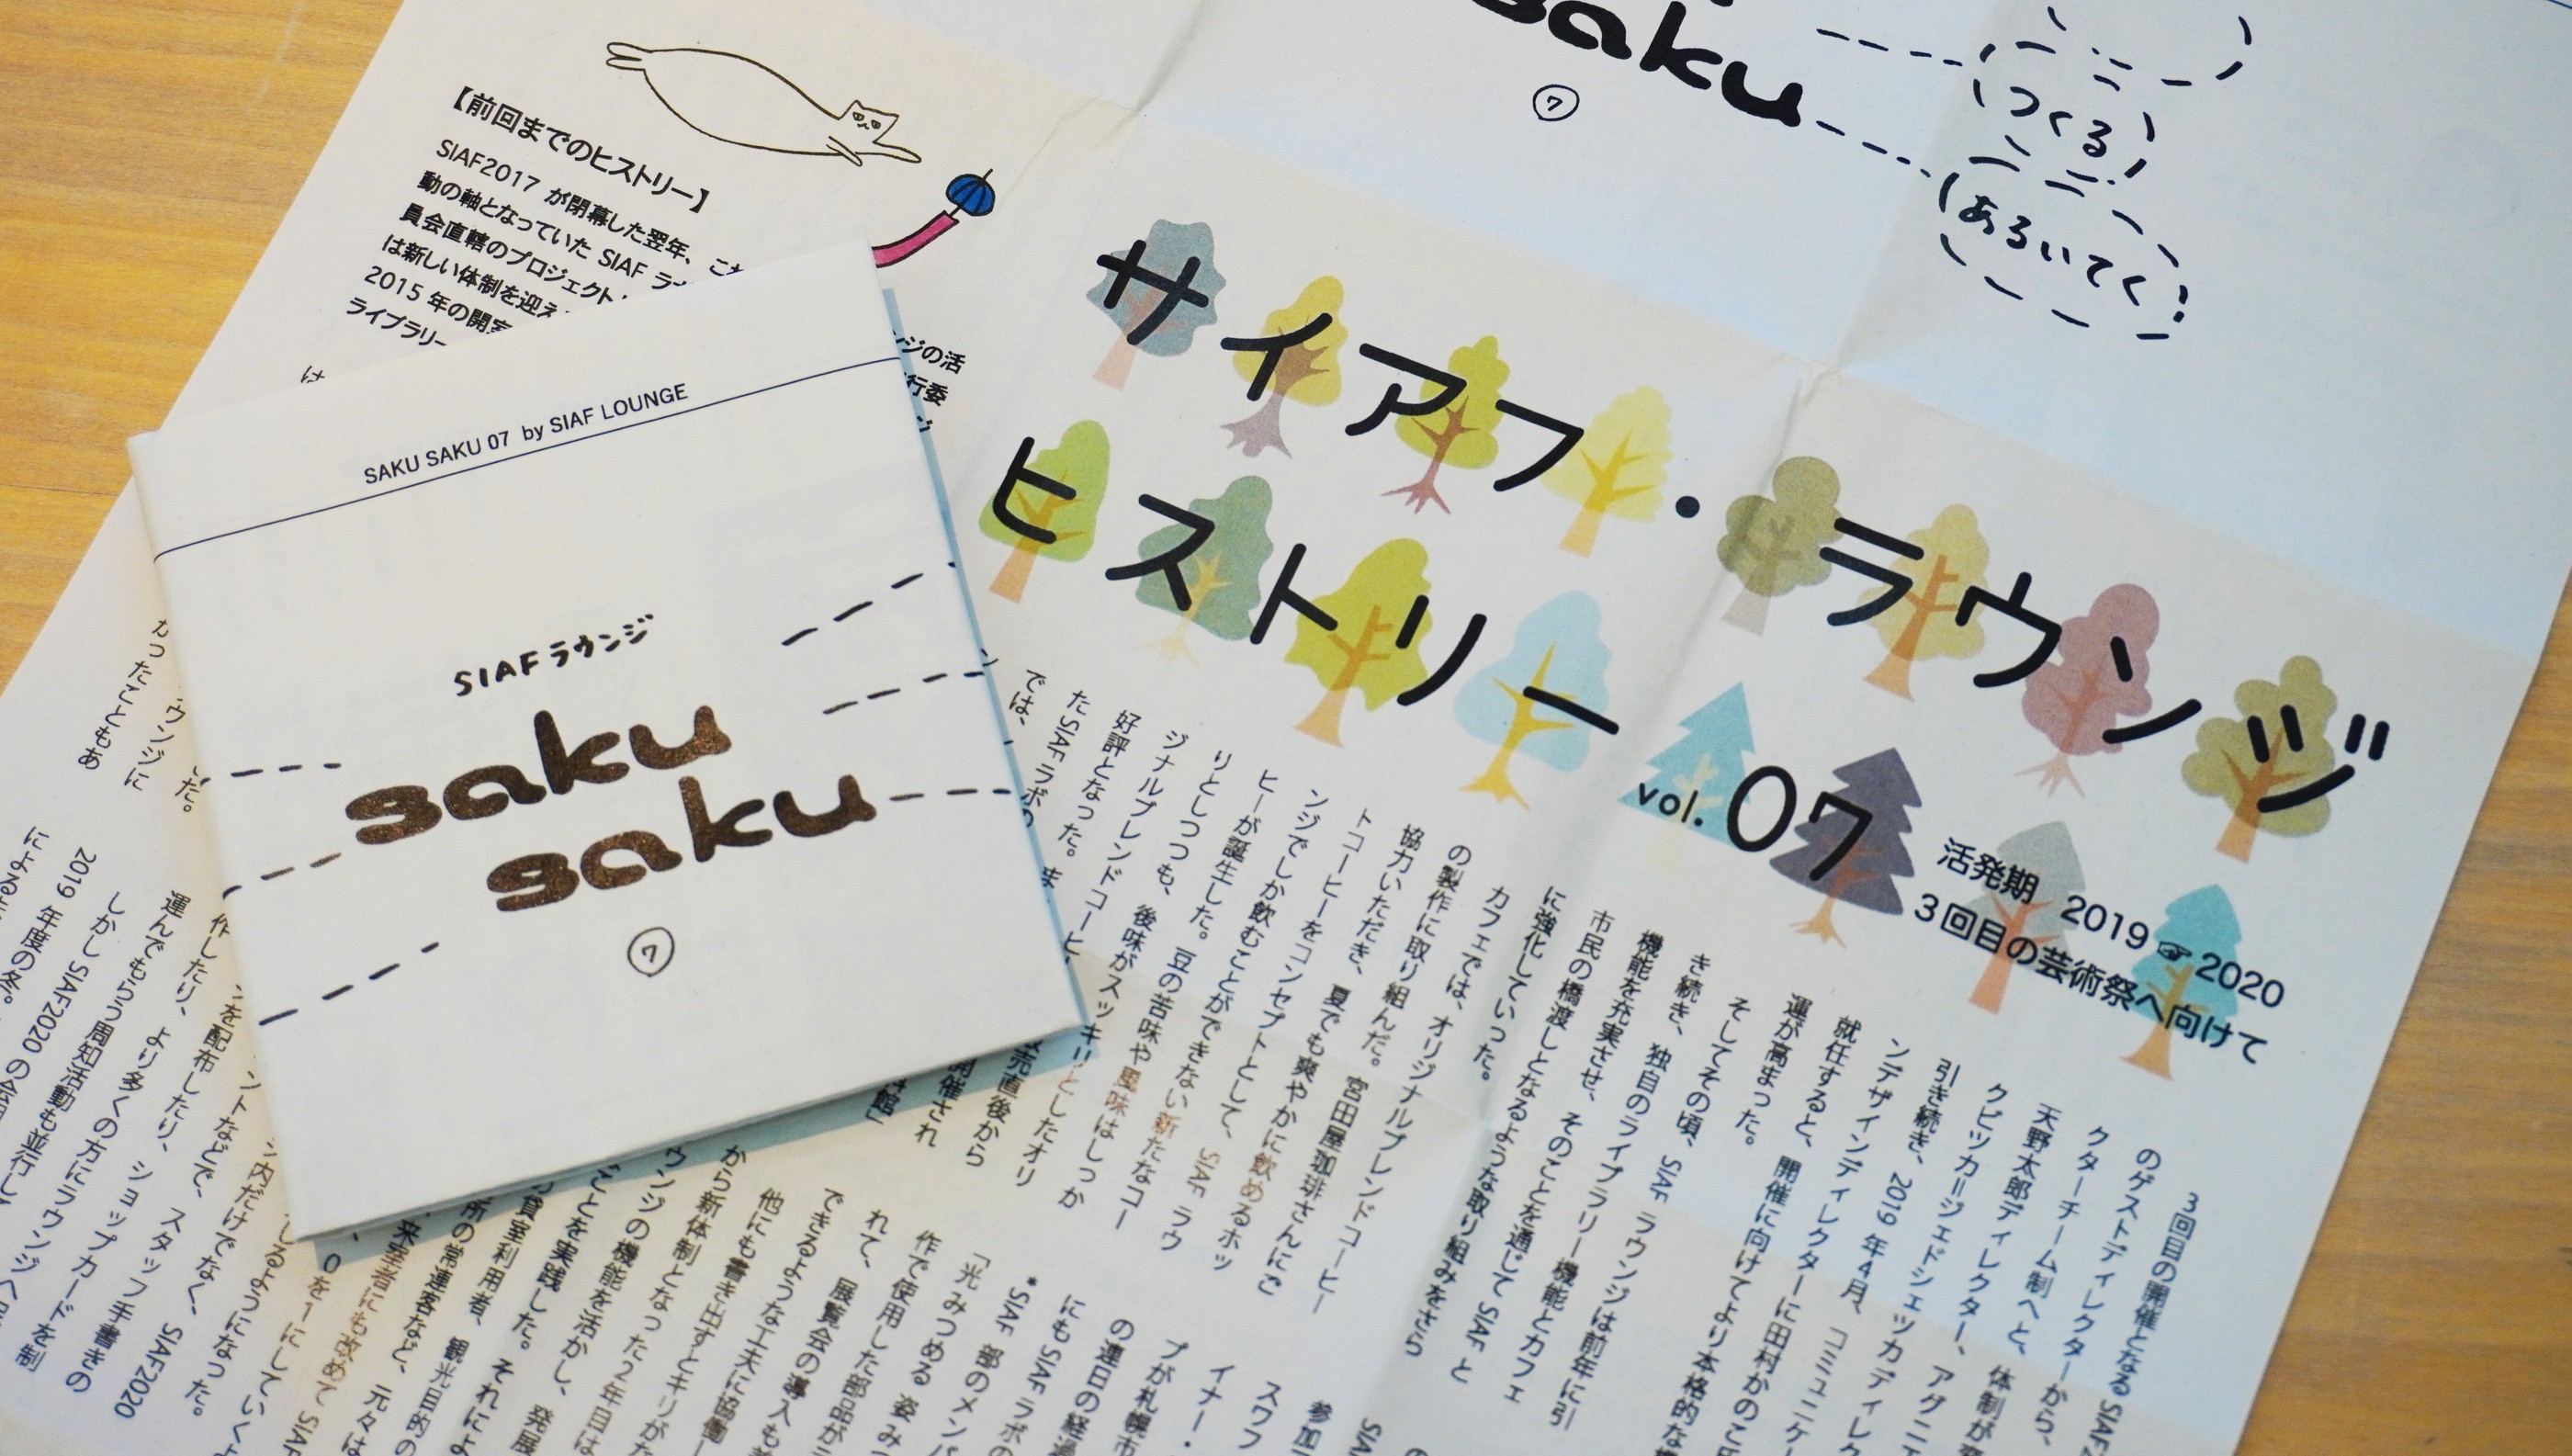 【前回までのヒストリー】
SIAF2017 が閉幕した翌年、
動の軸となっていた SIAF
員会直轄のプロジェクト
は新しい体制を迎え
2015 年の開室
ライブラリー
は
ンジの活
行委
saku
⑦
つくる
あるいてく
SAKU SAKU 07 by SIAF LOUNGE
SIAFラウンジ
saku
saku
⑦
サイアフ・ラウンジ
ヒストリー
vol.07
活発期 2019☞2020
3回目の芸術祭へ向けて
3回目の開催となるSIAF2
のゲストディレクターから、
クターチーム制へと、体制が
天野太郎ディレクター、アグニ
クビツカ=ジェドシェツカディレク
引き続き、2019 年4月、コミュニケー
ンデザインディレクターに田村かのこ
就任すると、開催に向けてより本格的な
運が高まった。
そしてその頃、SIAF ラウンジは前年に引
き続き、独自のライブラリー機能とカフェ
機能を充実させ、そのことを通じて SIAF と
市民の橋渡しとなるような取り組みをさら
に強化していった。
カフェでは、オリジナルブレンドコーヒー
の製作に取り組んだ。宮田屋珈琲さんにご
協力いただき、夏でも爽やかに飲めるホッ
トコーヒーをコンセプトとして、SIAF ラウ
ンジでしか飲むことができない新たなコー
ヒーが誕生した。豆の苦味や風味はしっか
りとしつつも、後味がスッキリとしたオリ
ジナルブレンドコーヒ
好評となった。ま
たSIAFラボの
では、
売直後から
開催され
館」
参加
スワフ
イナー・
プが札幌市
の連日の経過
にもSIAFラボの
*SIAF 部のメンバ
「光みつめる 姿み
作で使用した部品が
れて、展覧会の導入も
できるような工夫に協働
他にも書き出すとキリがな
から新体制となった2年目は
ウンジの機能を活かし、発展
ことを実践した。それによ
貸室利用者、観光目的の
所の常連客など、元々は
来室者にも改めて SIAF
0を1にしていくよ
じるようになった。
ジ内だけでなく、SIAF2020
ントなどで、スタッフ手書きの
ンを配布したり、ショップカードを制
作したり、より多くの方にラウンジへ足
運んでもらう周知活動も並行して
しかし SIAF2020 の
2019 年度の冬。
による
だ。
ウンジに
かったこともあ